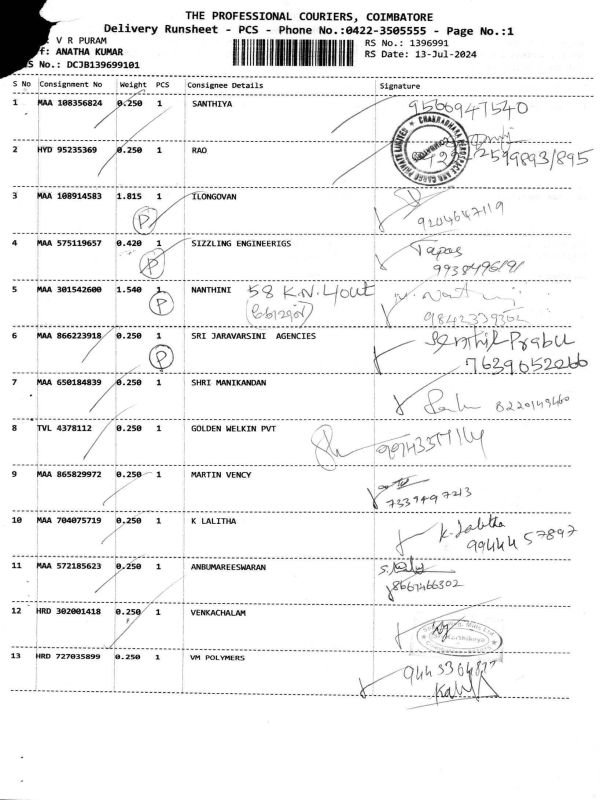 THE PROFESSIONAL COURIERS, COIMBATORE
Delivery Runsheet - PCS - Phone No.:0422-3505555 - Page No.:1
: V R PURAM
RS No.: 1396991
f: ANATHA KUMAR
RS Date: 13-Jul-2024
S No.: DCJB139699101
S No Consignment No Weight PCS Consignee Details Signature
1 MAA 108356824 0.250 1 SANTHIYA 9566947540
2 HYD 95235369 0.250 1 RAO 2599893/895
3 MAA 108914583 1.815 1 ILONGOVAN
P 9204647119
4 MAA 575119657 0.420 1 SIZZLING ENGINEERIGS Tapas
P
5 MAA 301542600 1.540 1 NANTHINI 58 K.N. Lout
P 9842339302
6 MAA 866223918 0.250 1 SRI JARAVARSINI AGENCIES Senthil Prabu
P 7639052066
7 MAA 650184839 0.250 1 SHRI MANIKANDAN 8220149460
8 TVL 4378112 0.250 1 GOLDEN WELKIN PVT
9 MAA 865829972 0.250 1 MARTIN VENCY
7339497213
10 MAA 704075719 0.250 1 K LALITHA K. Lalitha
99444 57897
11 MAA 572185623 0.250 1 ANBUMAREESWARAN
8667466302
12 HRD 302001418 0.250 1 VENKACHALAM
13 HRD 727035899 0.250 1 VM POLYMERS